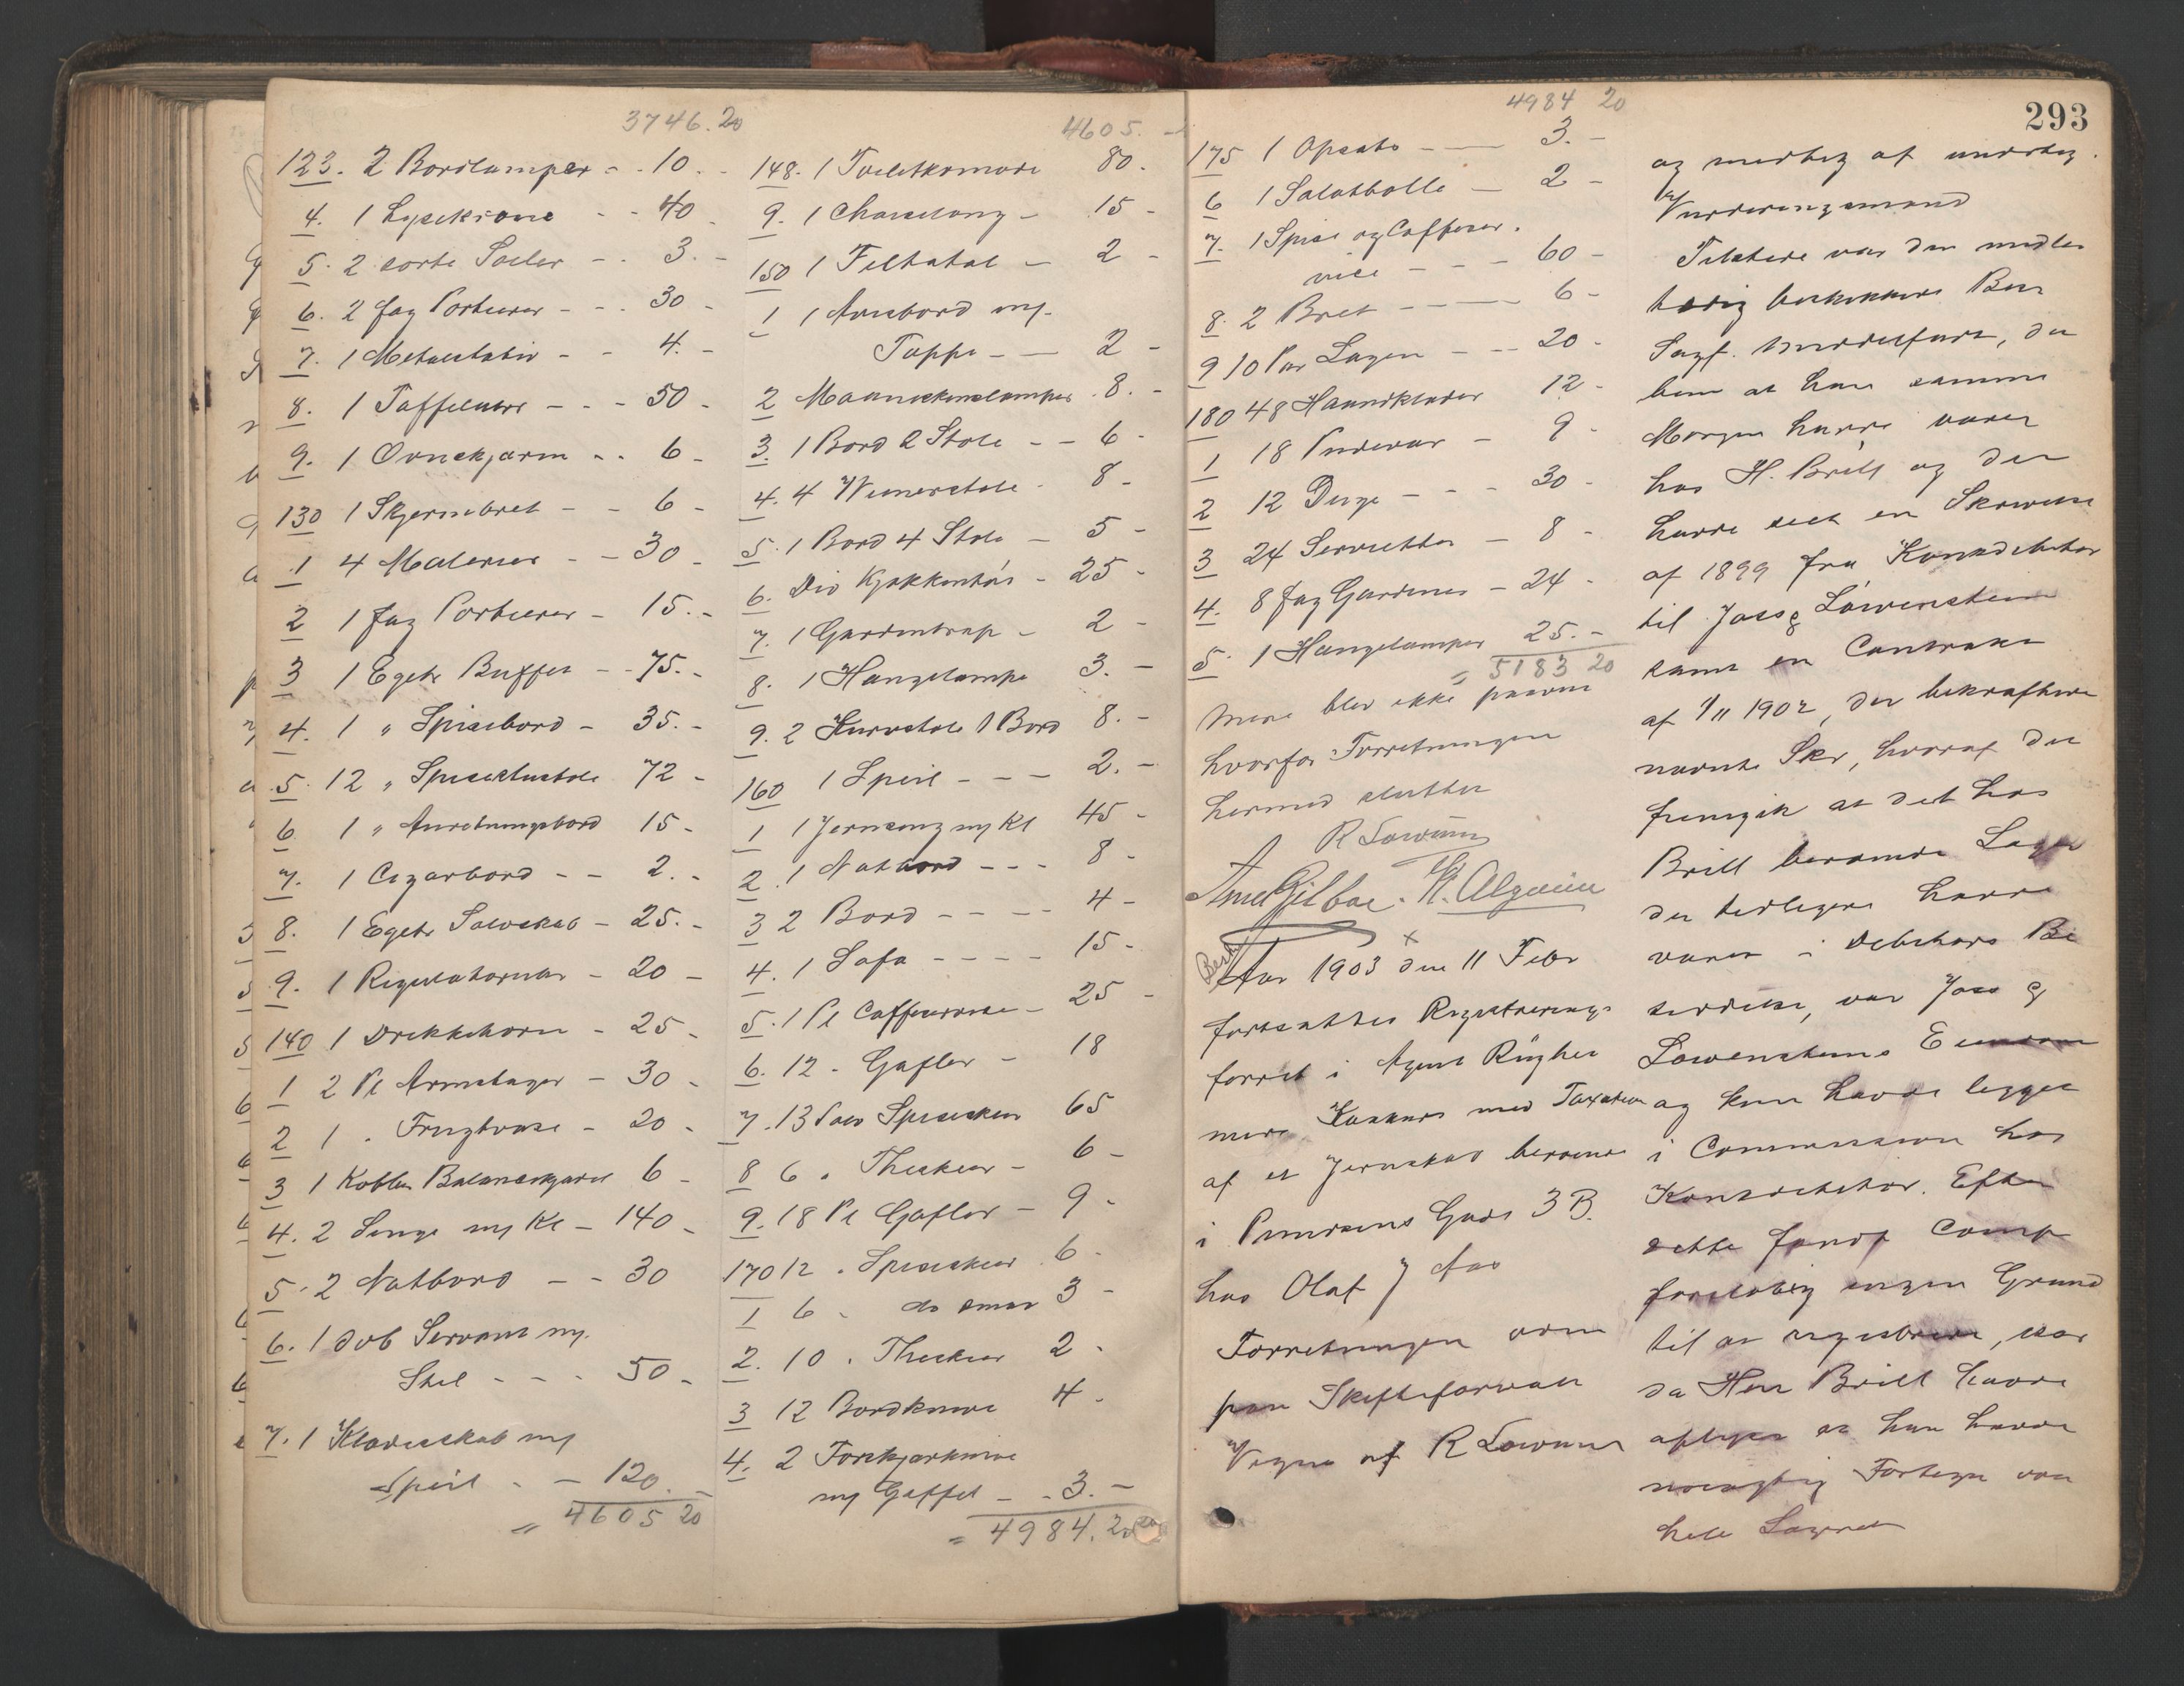 3746.20
123. 2 Bordlamper - - 10. -
4. 1 Lysekrone - - 40 -
5. 2 sorte Soiler - - 3. -
6. 2 fag Portierer - - - 30 -
7. 1 Metalstativ - - 4. -
8. 1 Taffeluhr - - - 50 -
9. 1 Ovnskjærm - - 6 -
130 1 Skjermbret - - 6 -
1 4 Malerier - - 30 -
2 1 fag Portierer - 15. -
3 1 Egetr Buffet - - 75. -
4. 1 " Spisebord - 35. -
5. 12 " Spisestuestole 72 -
6 1 " Anretningsbord 15 -
7. 1 Cigarbord - - 2. -
8. 1 Egetr Sølvskab - 25. -
9. 1 Regulatoruhr - 20 -
140 1 Drikkehorn - 25 -
1 2 Pl Armstager - 30 -
2 1 " Frugtvase - 20 -
3 1 Kobber 6 -
4. 2 Senge m/ Kl - 140 -
5. 2 Natbord - - 30
6. 1 dob Servante m/
Stel - - - 50 -
7. 1 Klædeskab m/
Speil - - 120. -
= 4605 20
4605. -
148. 1 Toiletkomode 80 -
9. 1 Chaiselong - 15 -
150 1 Feltstol - 2 -
1 1 Avisbord m/
Tæppe - - 2 -
2 Maaneskinslamper 8. -
3. 1 Bord 2 Stole - - 6 -
4. 4 Wienerstole - 8 -
5. 1 Bord 4 Stole - 5 -
6. Div Kjøkkentøi - 25 -
7. 1 Gardintrap - 2 -
8. 1 Hængelampe 3. -
9. 2 Kurvstole 1 Bord 8. -
160 1 Speil - - - 2. -
1 1 Jernseng m/ Kl 45 -
2. 1 Natbord - - - 8 -
3 2 Bord - - - - 4 -
4. 1 Sofa - - - - 15 -
5. 1 Pl Caffeservice - 25 -
6. 12 - Gafler - 18
7. 13 Sølv Spiseskeer 65
8 6 " Theskeer - 6 -
9. 18 Pl Gafler - 9 -
170 12 " Spiseskeer 6 -
1 6 - do smaa 3 -
2. 10 " Theskeer 2 -
3 12 Bordknive 4 -
4. 2 Forskjærknive
m/ Gaffel - - 3. -
= 4984. 20
4984 20
175 1 Opsats - - 3. -
6 1 Salatbolle - 2 -
7. 1 Spise og Caffeser-
vice - - - 60 -
8. 2 Bret - - - 6 -
9 10 Par Lagen - - - 20 -
180 48 Haandklæder 12 -
1 18 Pudevar - 9 -
2 12 Duge - - - 30 -
3 24 Servietter - 8 -
4. 8 fag Gardiner - 24 -
5. 1 Hængelamper 25. -
= 5183 20
Mere blev ikke paavist
hvorfor Forretningen
hermed sluttet
Aar 1903 den 11 Febr
fortsattes Registrerings-
forret i Agent
Konkurs med Taxation
af et Jernskab beroende
i Pundsens Gade 3 B.
hos Olaf J Aas
Forretningen
paa Skifteforvalt
Vegne af R
293
og medtog af underteg.
Vurderingsmænd
Tilstede var den midler
tidig beskikkede Bo
Sagf. Middelfart, der
bem at han samme
Morgen havde været
hos H. Brill og der
havde seet en Skrivelse
af 1899 fra Konkdebitor
til Joss & Löwenstein
samt en Contrakt
af 1/11 1902, der bekræftede
nævnte Skr, hvoraf det
fremgik at det hos
Brill beroende Lager
der tidligere havde
været i Debitors Be
siddelse, var Joss &
Löwensteins Eiendom
og kun havde ligget
i Commission hos
Konkdebitor. Efter
dette fandt Comp
foreløbig ingen Grund
til at registrere, især
da Herr Brill havde
oplyst at han havde
nøiagtig Fortegn over
hele Lageret